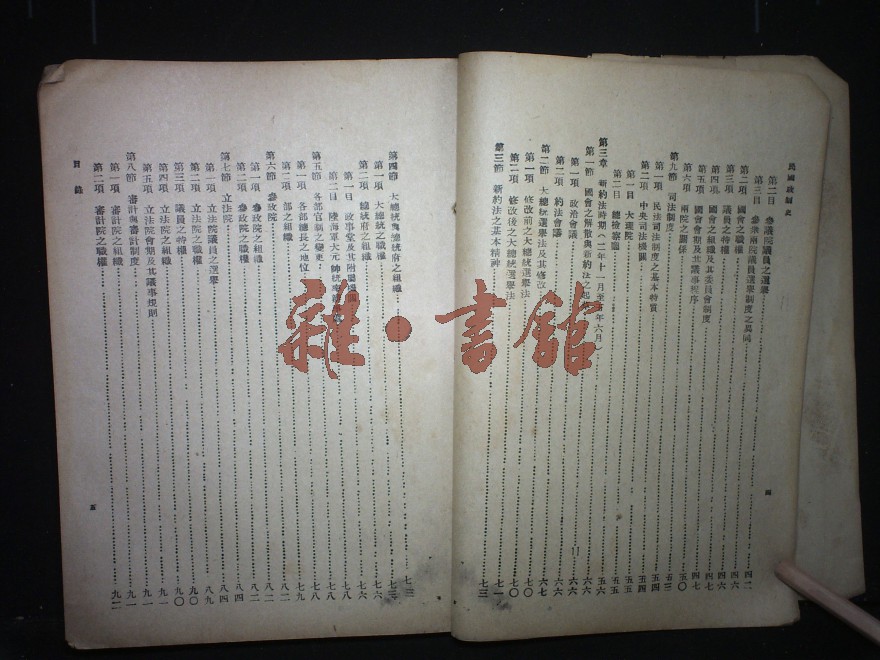 民國政制史
第二目 參議院議員之選舉 四二
第三目 參衆兩院議員選舉制度之異同 四六
第二項 國會之職權 四六
第三項 議員之特權 四六
第四項 國會之組織及其委員會制度 四七
第五項 國會會期及其議事程序 四七
第六項 兩院之關係 五〇
第九節 司法制度 五三
第一項 民法司法制度之基本特質 五四
第二項 中央司法機關 五四
第一目 大理院 五五
第二目 總檢察廳 五五
第三章 新約法時期
第一節 國會之解散與新約法之起 六六
第一項 政治會議 六六
第二項 約法會議 六六
第二節 大總統選舉法及其修改 六七
第一項 修改前之大總統選舉法 七〇
第二項 修改後之大總統選舉法 七〇
第三節 新約法之基本精神 七三
四
第四節 大總統與總統府之組織 七三
第一項 大總統之職權
第二項 總統府之組織 七六
第一目 政事堂及其附屬 七八
第二目 陸海軍大元帥統率 七八
第五節 各部官制之變更 七八
第一項 各部總長之地位 七九
第二項 部之組織 八二
第六節 參政院 八二
第一項 參政院之組織 八二
第二項 參政院之職權 八四
第七節 立法院 八四
第一項 立法院議員之選舉 八九
第二項 立法院之職權 九〇
第三項 議員之特權 九〇
第四項 立法院之組織 九一
第五項 立法院會期及其議事規則 九一
第八節 審計與審計制度 九一
第一項 審計院之組織 九一
第二項 審計院之職權 九二
目錄
五
雜·書館